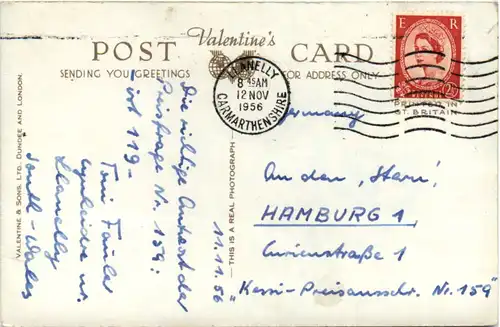 Valentine's
POST CARD
SENDING YOU GREETINGS
FOR ADDRESS ONLY
LLANELLY
8 45 AM
12 NOV
1956
CARMARTHENSHIRE
E R
2½D
PRINTED IN
GT. BRITAIN
VALENTINE & SONS, LTD. DUNDEE AND LONDON.
THIS IS A REAL PHOTOGRAPH
11.11.56
Die richtige Antwort der
Preisfrage Nr. 159:
ist 119-
Toni
Llanelly
South-Wales
Germany
An den "Stern"
HAMBURG 1,
Curienstraße 1
"Kessi-Preisausschr. Nr. 159"